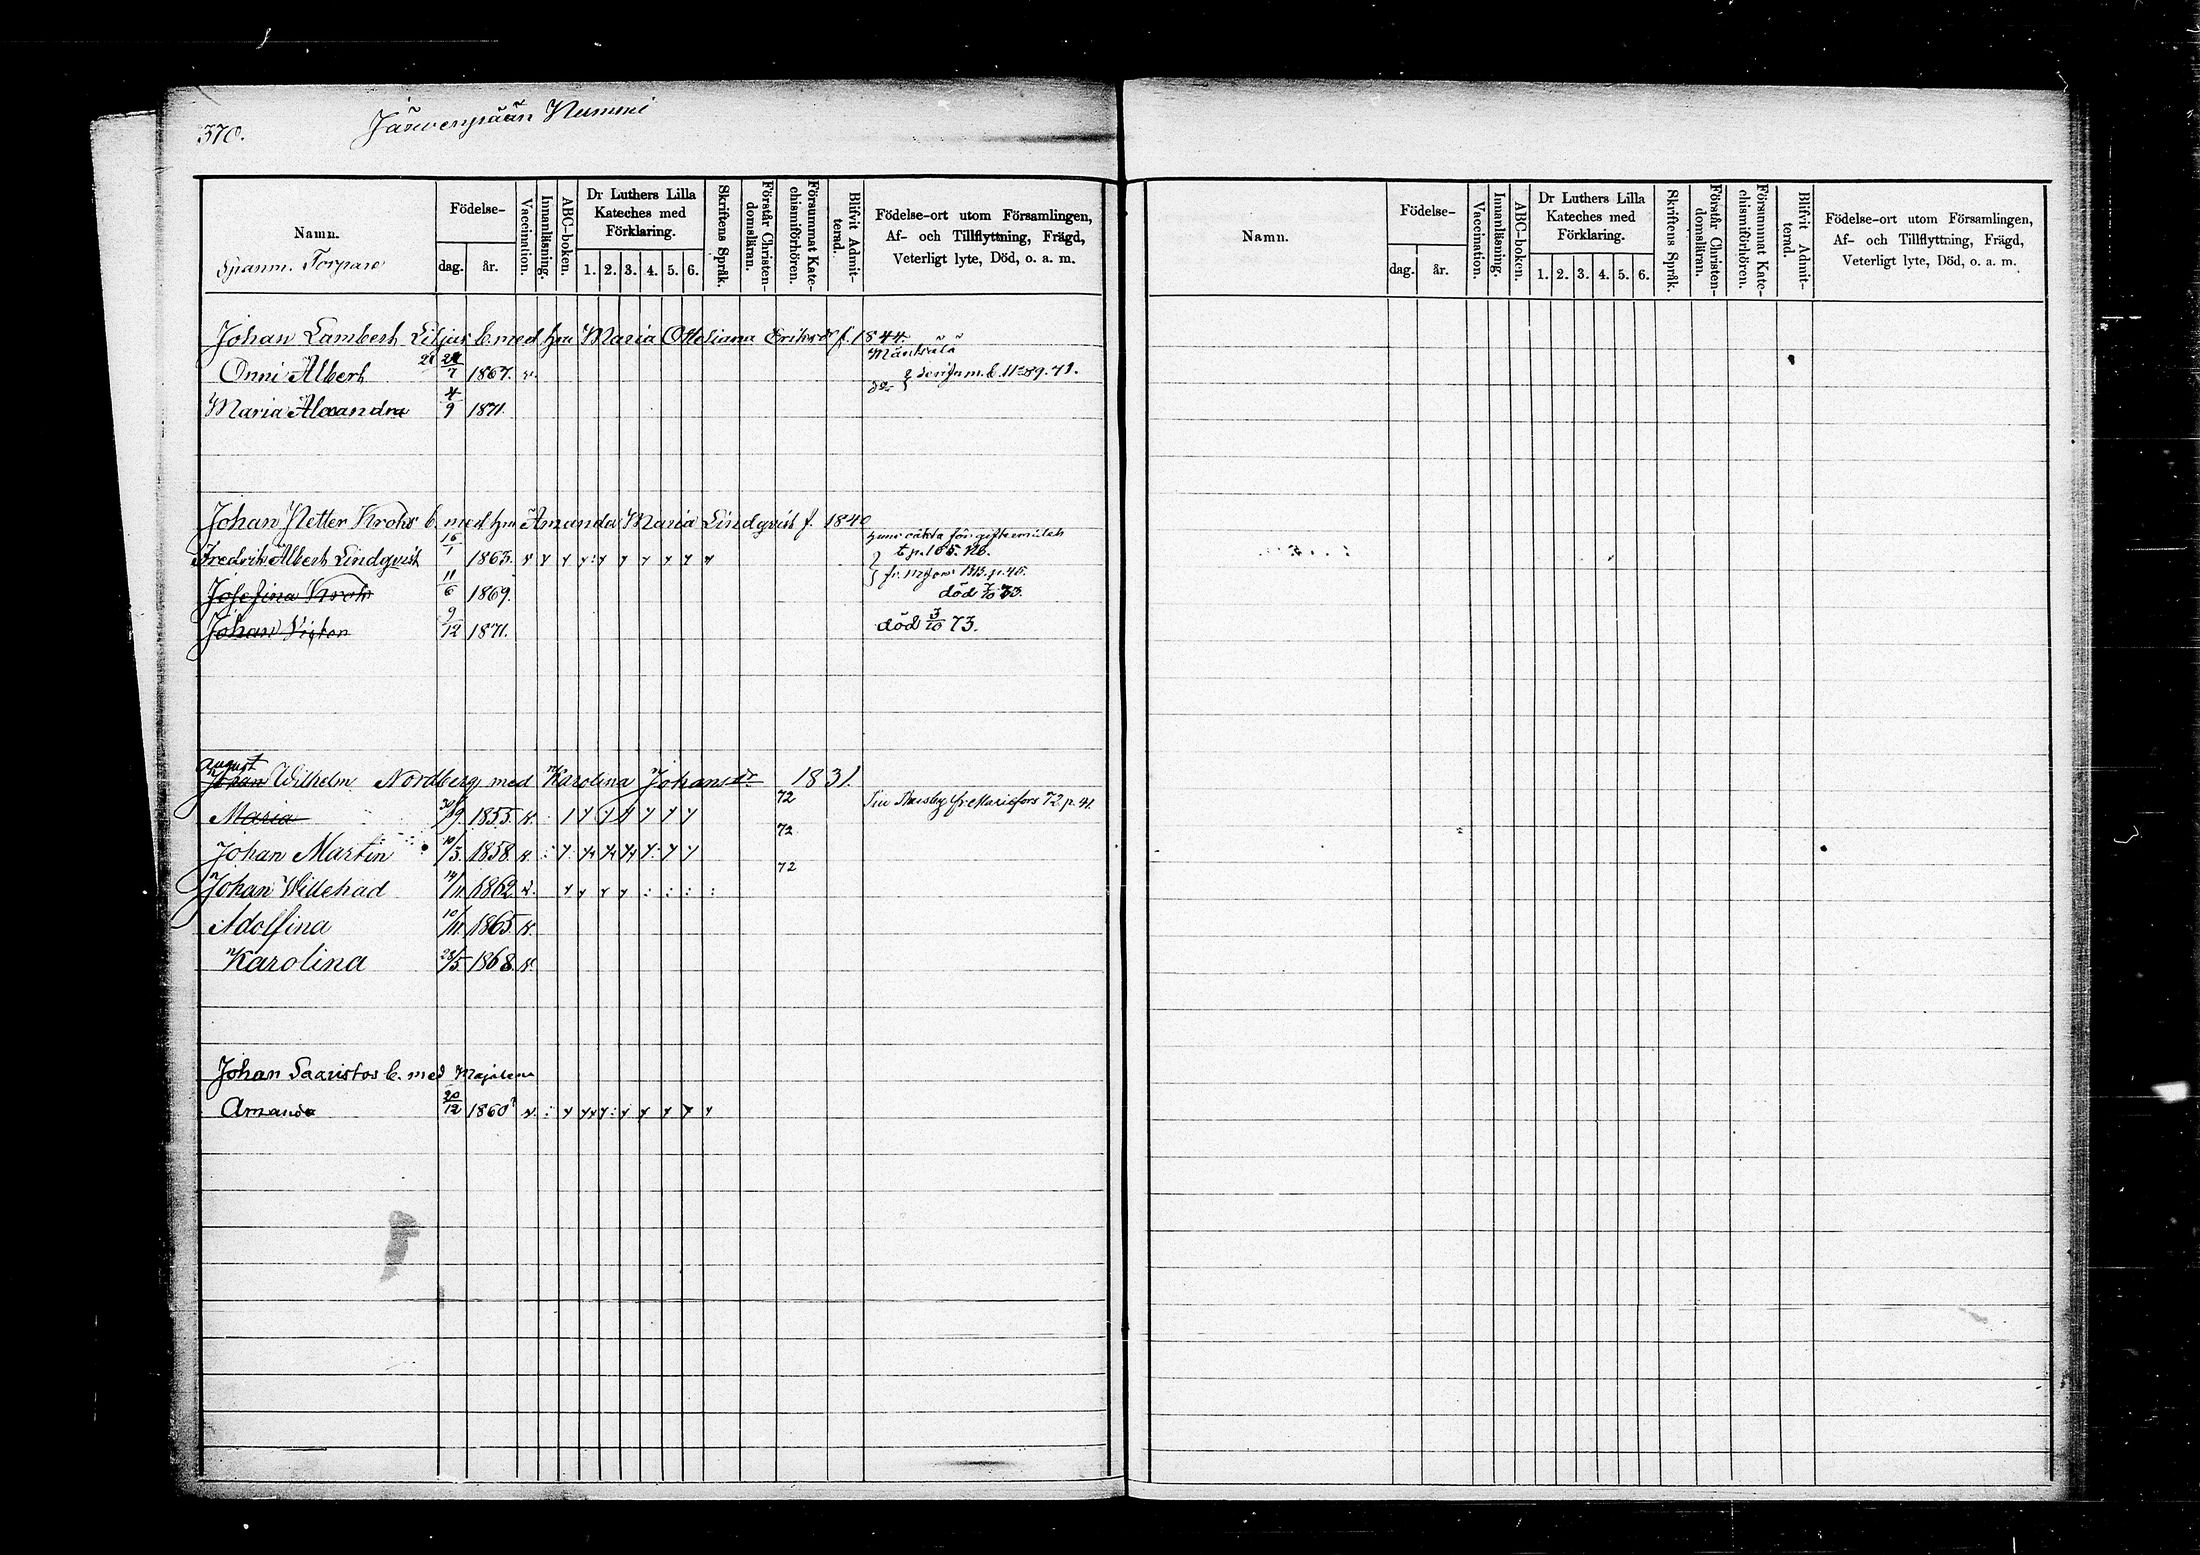 370.
Järvenpään Nummi
Namn.
Födelse-
dag.
år.
Vaccination.
Innanläsning.
ABC-boken.
Dr Luthers Lilla
Kateches med
Förklaring.
1. 2. 3. 4. 5. 6.
Skriftens Språk.
Förstår Christen-
domsläran.
Försummat Kate-
chismiförhören.
Blifvit Admit-
terad.
Födelse-ort utom Församlingen,
Af- och Tillflyttning, Frägd,
Veterligt lyte, Död, o. a. m.
Torpare
Johan Lambert Liljus b. med hu Maria f. 1844.
Mäntsälä
Onni Albert 7 1867. v.
Maria Alexandra 4/9 1871.
Johan Petter Krohs b. med hu Amanda Maria Lindqvist f. 1840
Fredrik Albert Lindqvist 16/1 1863. v
Josefina Krohs 11/6 1869. död 73.
Johan Viktor 9/12 1871. död 3/10 73.
August
Johan Wilhelm Nordberg med Karolina Johansdr 1831.
Maria 9. 1855. v. 72 72 p. 41.
Johan Martin 10/3. 1858. v. 72
Johan Willehad 14/11. 1862 v. 72
Adolfina 10/11. 1865. v.
Karolina 28/5 1868. v.
Johan Saaristos b. med Majalena
Amanda 20/12 1860? v.
Namn.
Födelse-
dag.
år.
Vaccination.
Innanläsning.
ABC-boken.
Dr Luthers Lilla
Kateches med
Förklaring.
1. 2. 3. 4. 5. 6.
Skriftens Språk.
Förstår Christen-
domsläran.
Försummat Kate-
chismiförhören.
Blifvit Admit-
terad.
Födelse-ort utom Församlingen,
Af- och Tillflyttning, Frägd,
Veterligt lyte, Död, o. a. m.